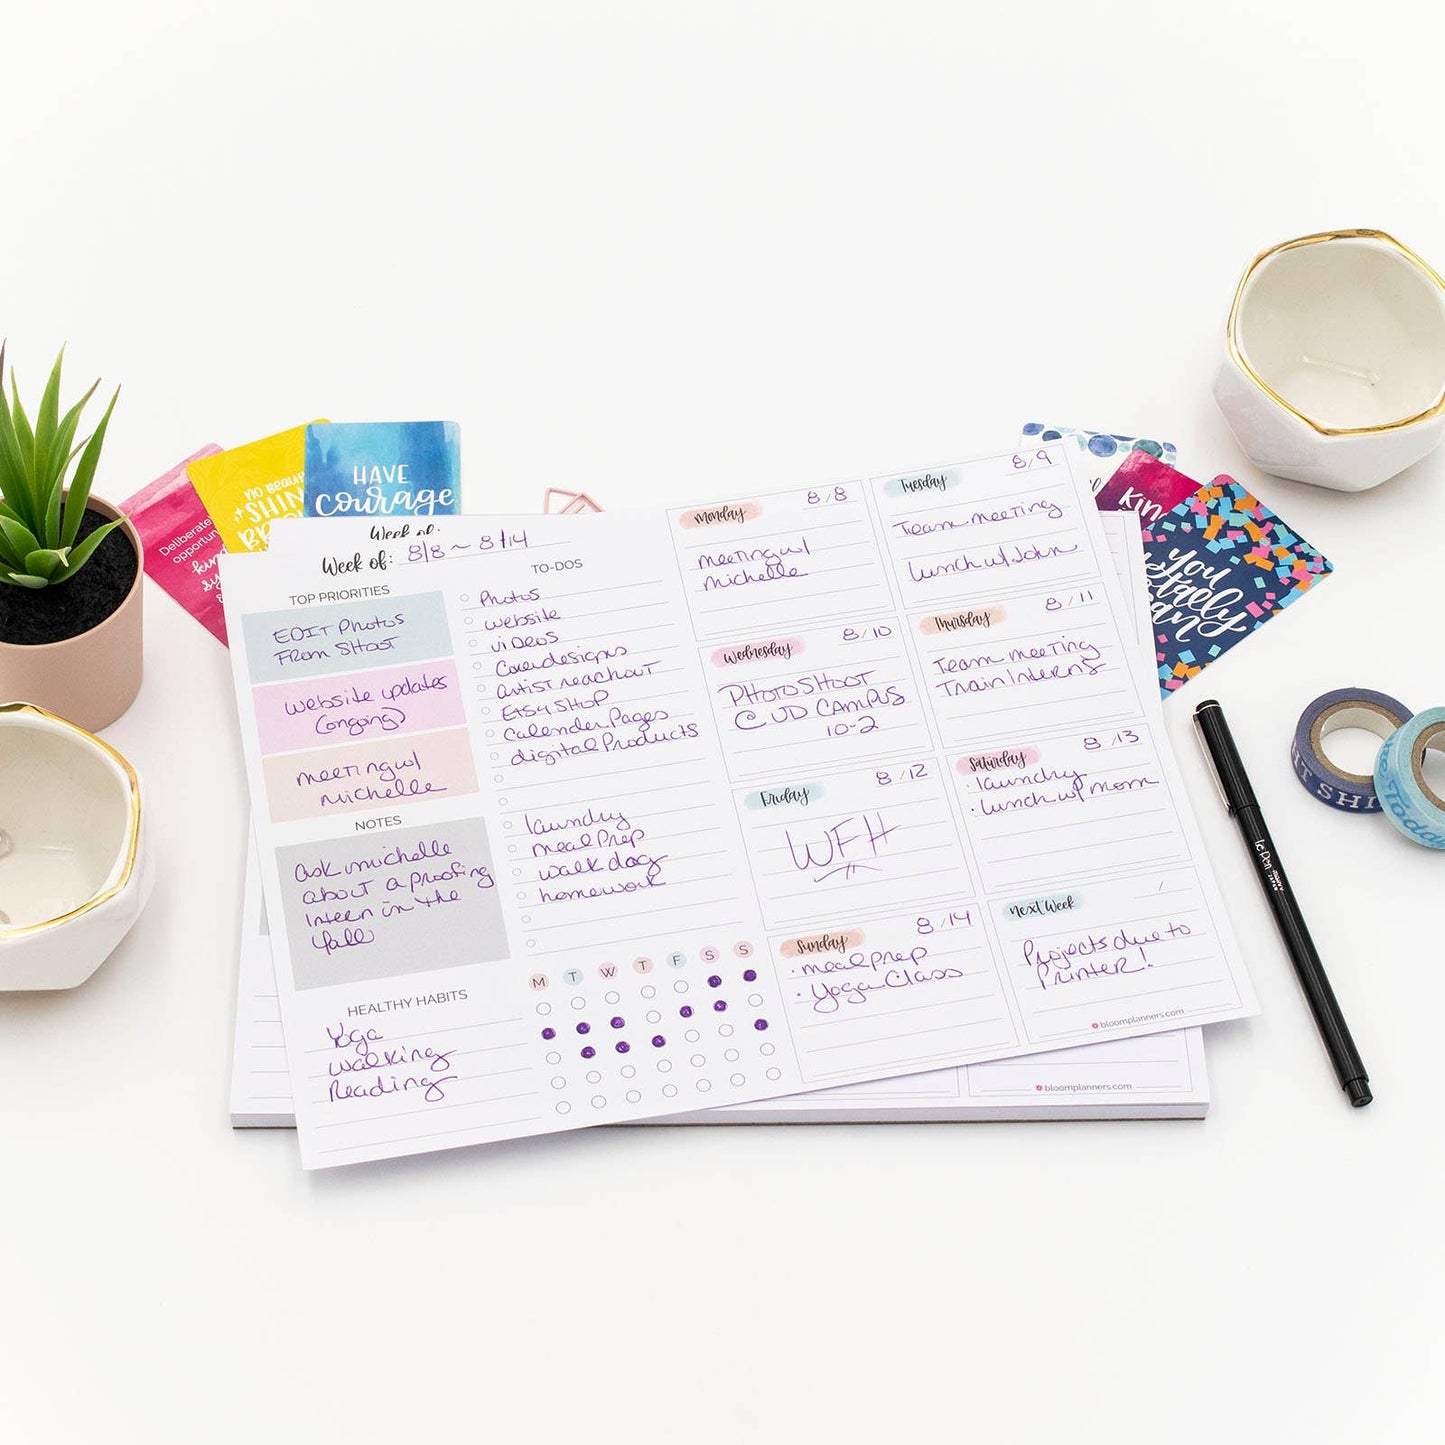 HAVE
courage
no
SHIN
Deliberate
opportuni
Week of:
Week of: 8/8 ~ 8/14
TOP PRIORITIES
EDIT Photos
From SHOOT
website updates
(ongoing)
meeting w/
michelle
NOTES
Ask michelle
about a proofing
Intern in the
fall
HEALTHY HABITS
Yoga
walking
Reading
TO-DOS
Photos
website
videos
Coverdesigns
artist reachout
Etsy SHOP
Calender Pages
digital Products
laundry
meal Prep
walk dog
homework
M T W T F S S
Monday 8/8
meeting w/
michelle
Tuesday 8/9
Team meeting
lunch w/ John
Wednesday 8/10
PHOTO SHOOT
@ UD CAMPUS
10-2
Thursday 8/11
Team meeting
Train Interns
Friday 8/12
WFH
Saturday 8/13
• laundry
• lunch w/ mom
Sunday 8/14
• meal prep
• Yoga Class
next Week /
Projects due to
Printer!
bloomplanners.com
bloomplanners.com
Kin
you
totally
can
Le Pen
IT SHI
Todd